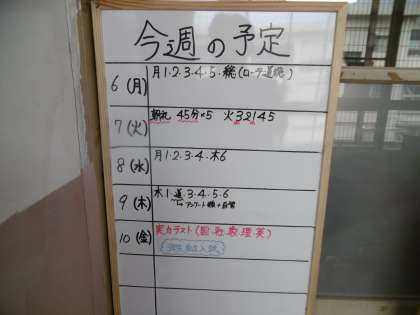 今週の予定
6(月) 月1・2・3・4・5・総(ローテ道徳)
7(火) 朝礼 45分×5 火32145
8(水) 月1・2・3・4・木6
9(木) 木1道・3・4・5・6
アンケート
10(金) 実力テスト(国・社・数・理・英)